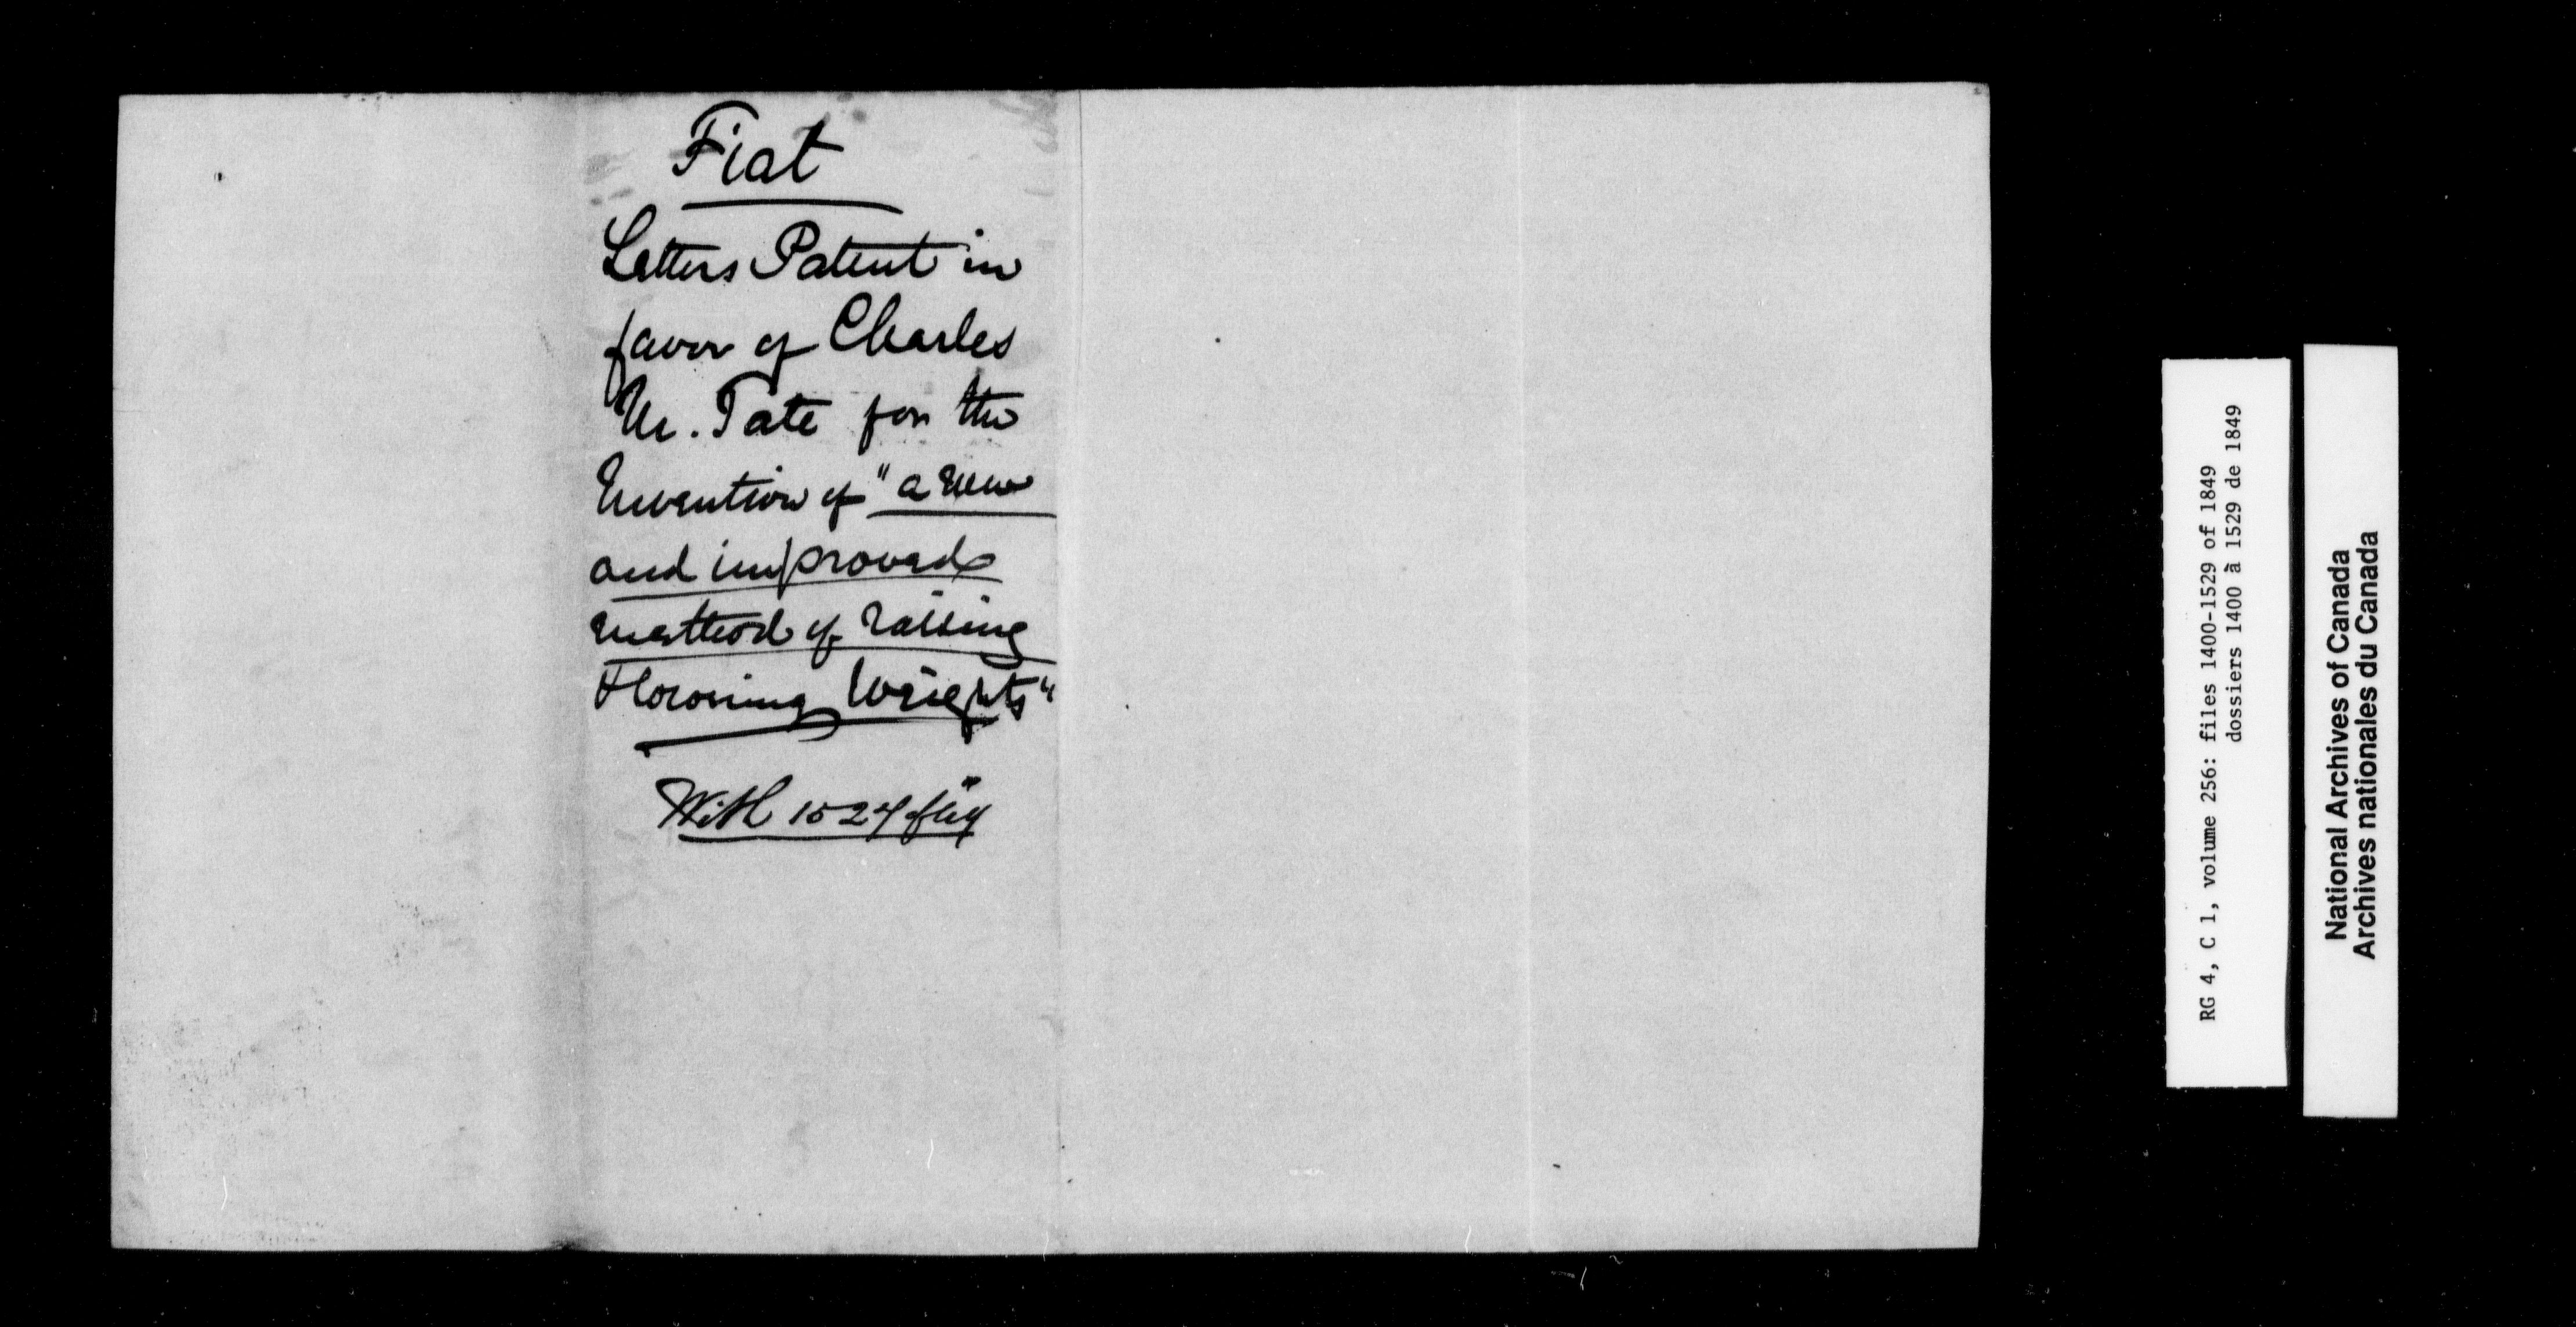 Fiat
Letters Patent in
favor of Charles
M. Tate for the
Invention of "a new
and improved
method of raising
& lowering Weights"
With 1524
RG 4, C 1, volume 256: files 1400-1529 of 1849
dossiers 1400 à 1529 de 1849
National Archives of Canada
Archives nationales du Canada